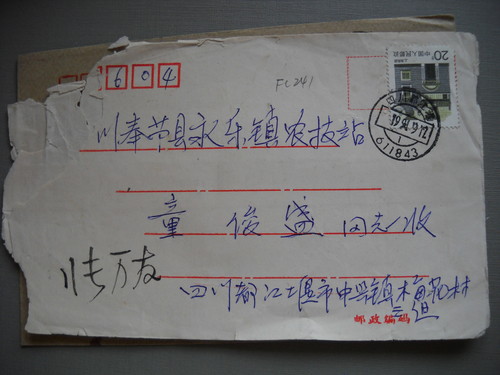 604
FC241
20分
中国人民邮政
1994.9.12
611843
川奉节县永乐镇农技站
童俊盛 同志收
张万友
四川都江堰市中兴镇梅花村
三组
邮政编码